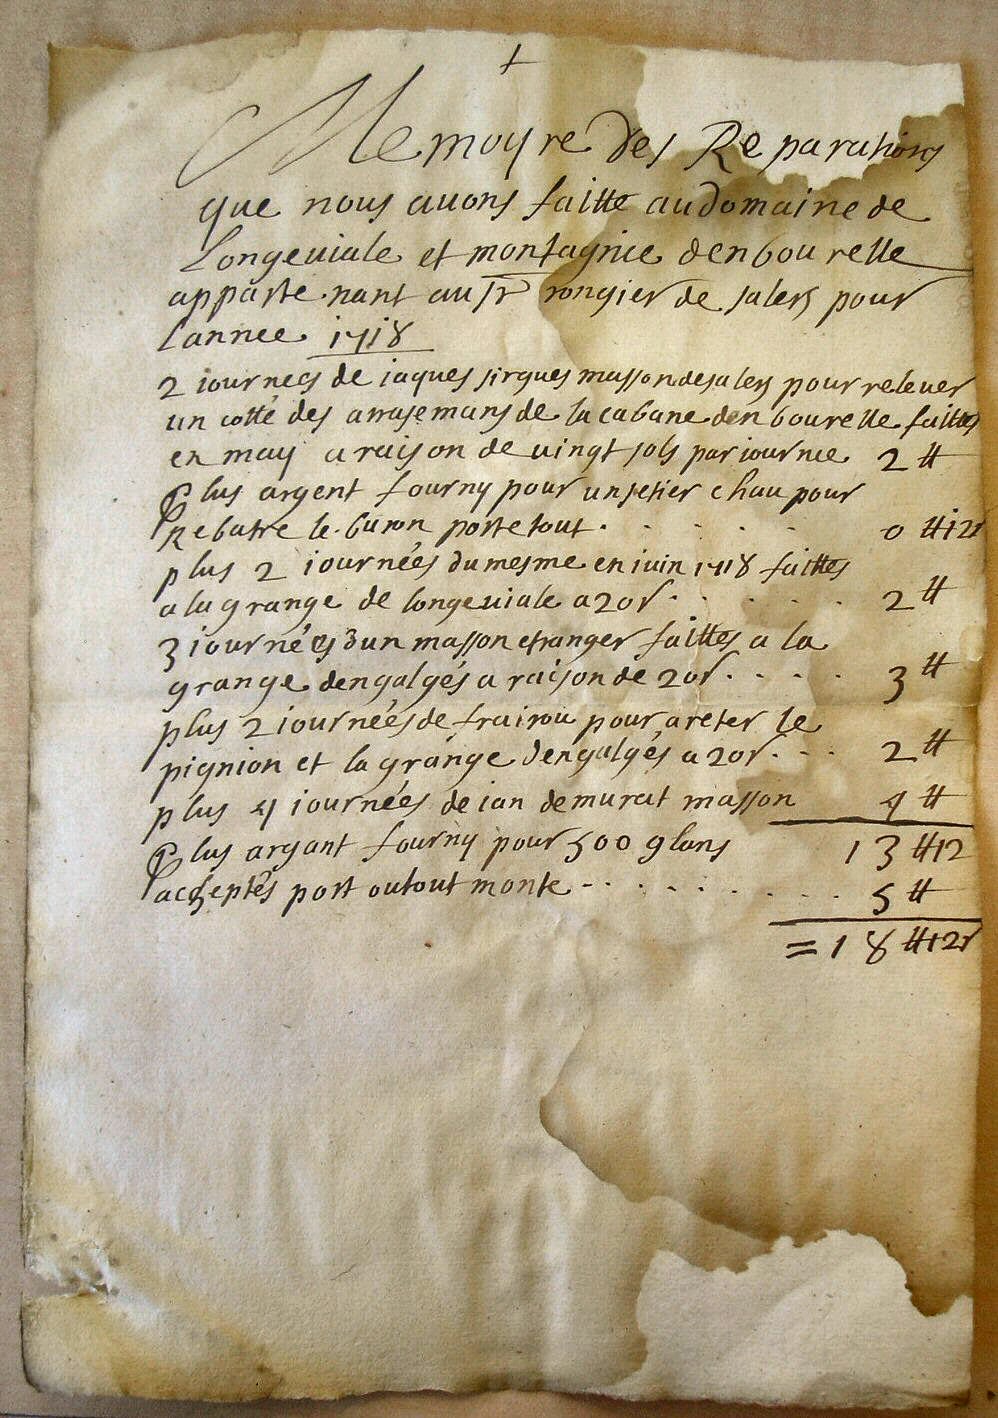 Memoyre des Reparations
que nous auons faitte audomaine de
Longeuiale et montagnie denbourelle
appartenant au sr rongier de salers pour
lannee 1718
2 iournees de iaques sirques masson de salers pour releuer
un costé des arrasemans de la cabane den bourelle faittes
en may a raison de uingt sols par iournee 2 ₶
plus argent fourny pour un setier chau pour
Rebatre le buron porte tout . . . . . 0 ₶ 12s
plus 2 iournées du mesme en iuin 1718 faittes
a la grange de longeuiale a 20s . . . . . 2 ₶
3 iournées dun masson etranger faittes a la
grange dengalgés a raison de 20s . . . . 3 ₶
plus 2 iournées de frairou pour areter le
pignion et la grange dengalgés a 20s . . . 2 ₶
plus 4 iournées de ian demurat masson 4 ₶
plus argant fourny pour 500 glans 13 ₶ 12
port outout monte - . . . . . . . . 5 ₶
= 18 ₶ 12s